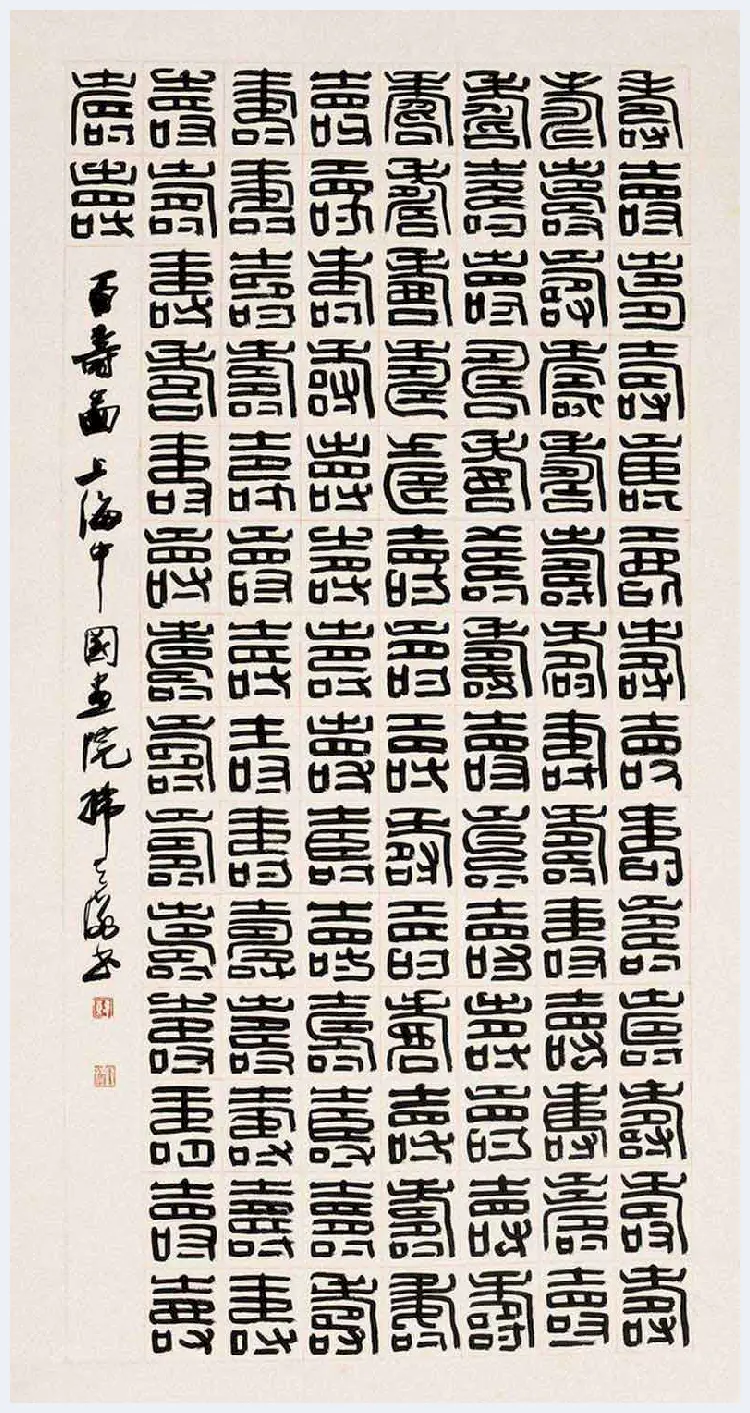 壽壽壽壽壽壽壽壽壽壽壽壽壽壽
壽壽壽壽壽壽壽壽壽壽壽壽壽壽
壽壽壽壽壽壽壽壽壽壽壽壽壽壽
壽壽壽壽壽壽壽壽壽壽壽壽壽壽
壽壽壽壽壽壽壽壽壽壽壽壽壽壽
壽壽壽壽壽壽壽壽壽壽壽壽壽壽
壽壽壽壽壽壽壽壽壽壽壽壽壽壽
壽壽
百壽啚上海中國画院